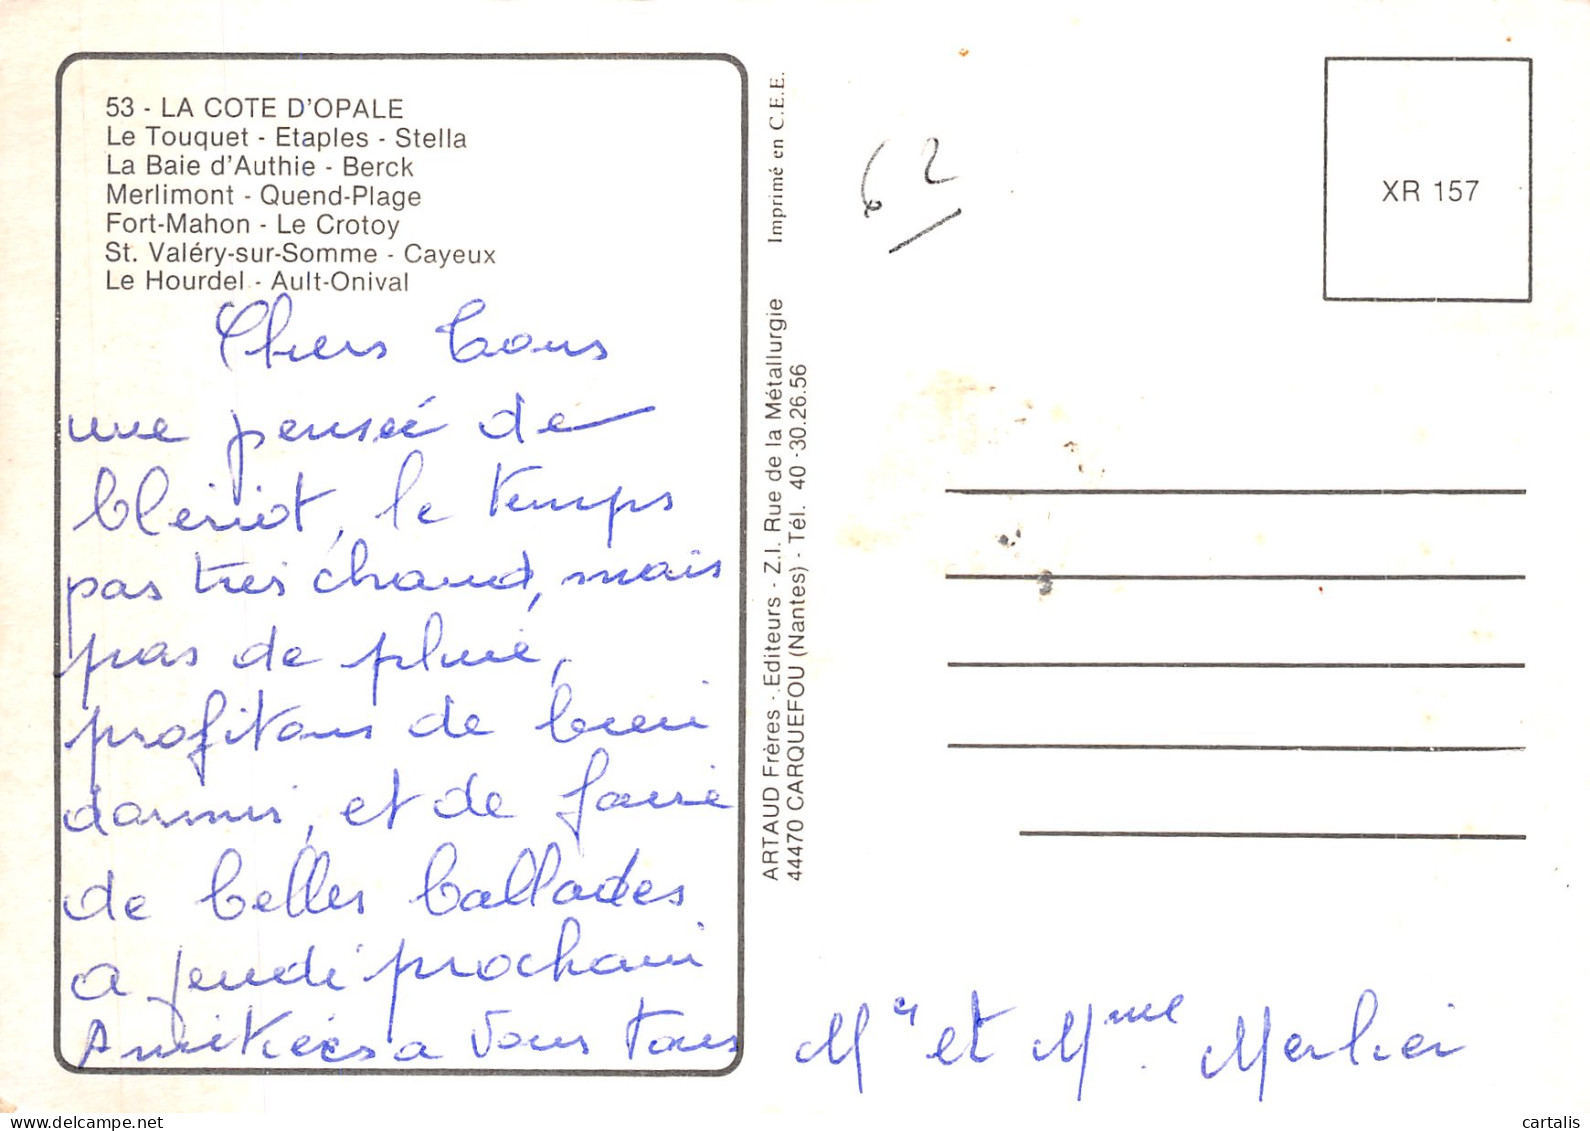 53 - LA COTE D'OPALE
Le Touquet - Etaples - Stella
La Baie d'Authie - Berck
Merlimont - Quend-Plage
Fort-Mahon - Le Crotoy
St. Valéry-sur-Somme - Cayeux
Le Hourdel - Ault-Onival
Chers tous
une pensée de
bleriot, le temps
pas tres chaud, mais
pas de pluie,
profitons de bien
dormir, et de faire
de belles ballades
a jeudi prochain
Amitiées a vous tous
Imprimé en C.E.E.
ARTAUD Frères - Editeurs - Z.I. Rue de la Métallurgie
44470 CARQUEFOU (Nantes) - Tél. 40 30.26.56
62
XR 157
Mr et Mme
cartalis